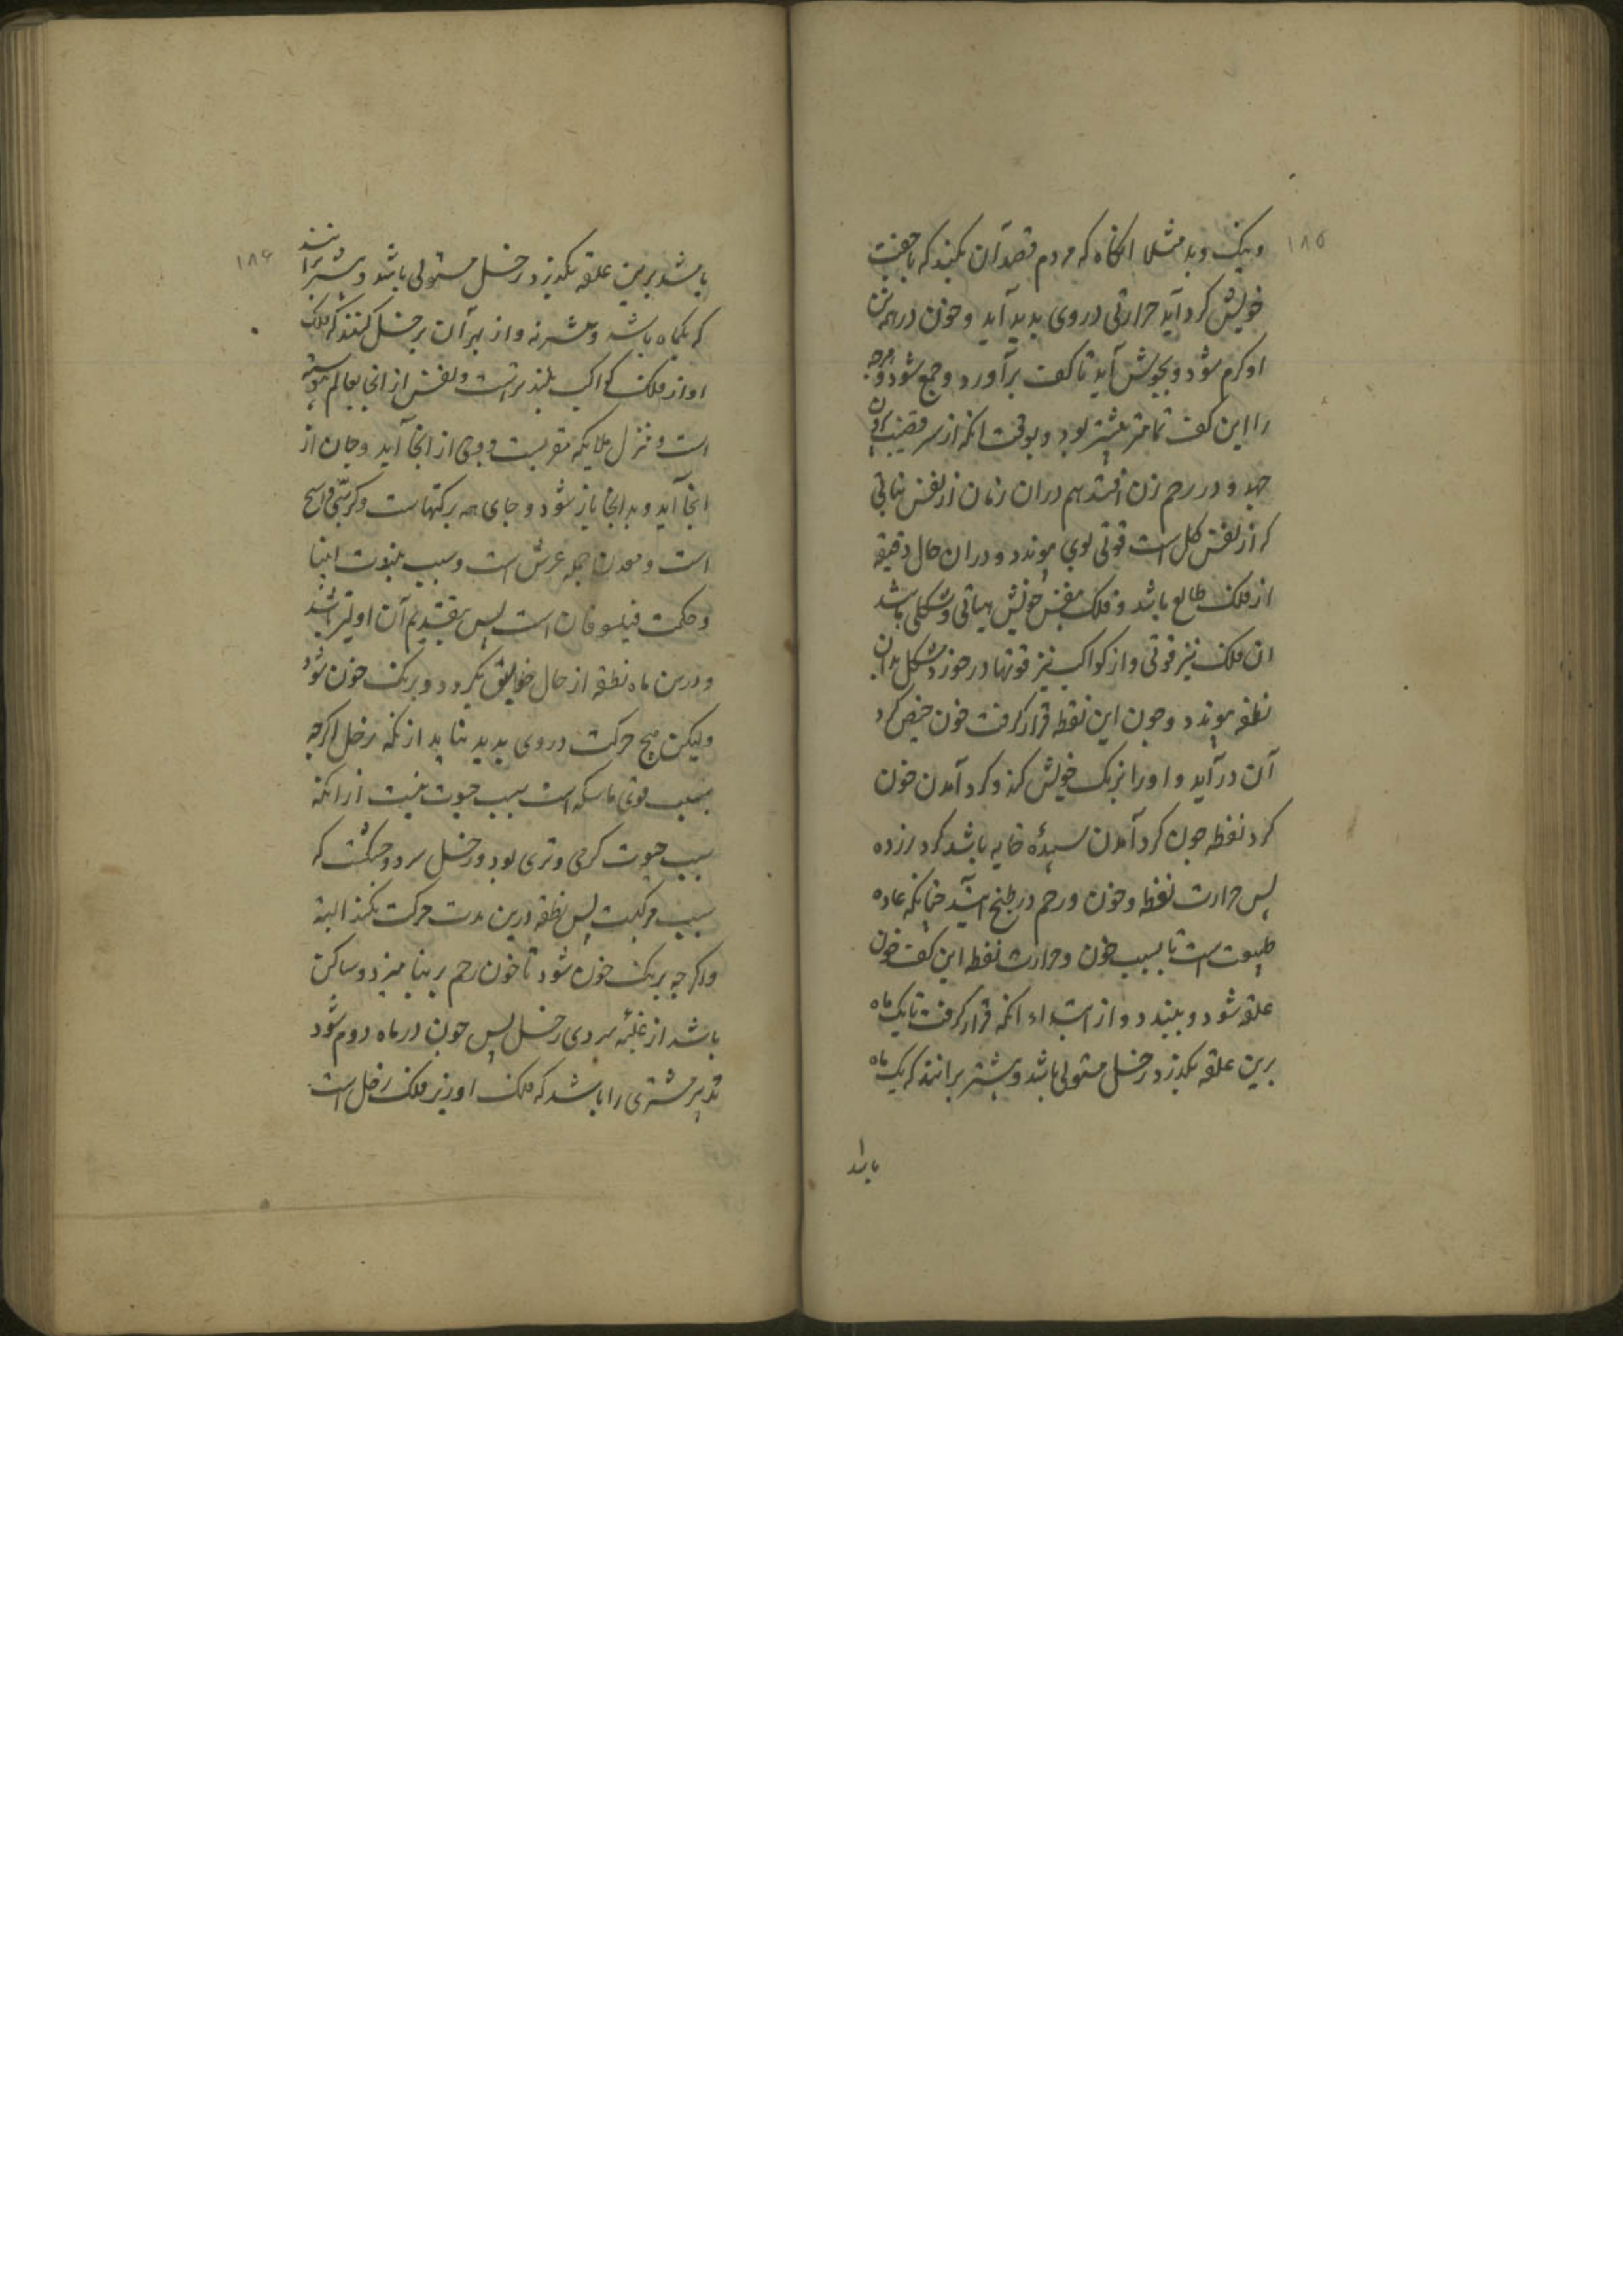 ۱۸۵
و نیک و بد مثلا انگاه که مردم قصد آن بکند که با جفت
خویش کرد آید حرارتی در وی بدید آید و خون در همه تن
او کرم شود و بجوش آید تا کف برآورد و جمع شود و هرچه
را این کف تمامتر بیشتر بود و بوقت انکه از سر قضیب برون
جهد و در رحم زن افتد هم دران زمان از نفس نباتی
که از نفس کل است قوتی بوی پیوندد و دران حال دقیقه
از فلک طالع باشد و فلک بنفس خویش هیاتی و شکلی باشد
ان فلک نیز قوتی و از کواکب نیز قوتها در خورد شکل بدان
نطفه پیوندد و چون این نقطه قرار کرفت خون حیض کرد
آن درآید و او را برنک خویش کند و کرد آمدن خون
کرد نقطه چون کرد آمدن سپیدهٔ خایه باشد کرد زرده
پس حرارت نقطه و خون و رحم در طبخ ایستد چنانکه عاده
طبیعت است تا بسبب خون و حرارت نقطه این کف خون
علقه شود و ببندد و از ابتداء انکه قرار کرفت تا یک ماه
برین علقه بکذرد زحل مستولی باشد و بیشتر برانند که یک ماه
باشد
۱۸۶
باشد برین علقه بکذرد زحل مستولی باشد و بیشتر برانند
که یکماه باشد و بیشتر نه و از بهر آن بر زحل کنند که فلک
او از فلک کواکب بلندتر است و نفس از انجا بعالم پیوسته
است و منزل ملایکه مقربست و وحی از انجا آید و جان از
انجا آید و بدانجا باز شود و جای همه برکتهاست و کرسی واسع
است و معدن جمله عرش است و سبب نبوت انبیا
و حکمت فیلسوفان است پس بتقدیم آن اولیتر باشد
و درین ماه نطفه از حال خویش بگردد و برنک خون شود
ولیکن هیچ حرکت در وی بدید نیاید از انکه زحل اکرچه
بسبب قوی ماسکه است سبب حیوت نیست از انکه
سبب حیوت کرمی و تری بود و زحل سرد و خشکست که
سبب مرکست پس نطفه درین مدت حرکت نکند البته
و اکرچه برنک خون شود تا خون رحم بر بنا میزد و ساکن
باشد از غلبهٔ سردی زحل پس چون در ماه دوم شود
تدبیر مشتری را باشد که فلک او زیر فلک زحل است